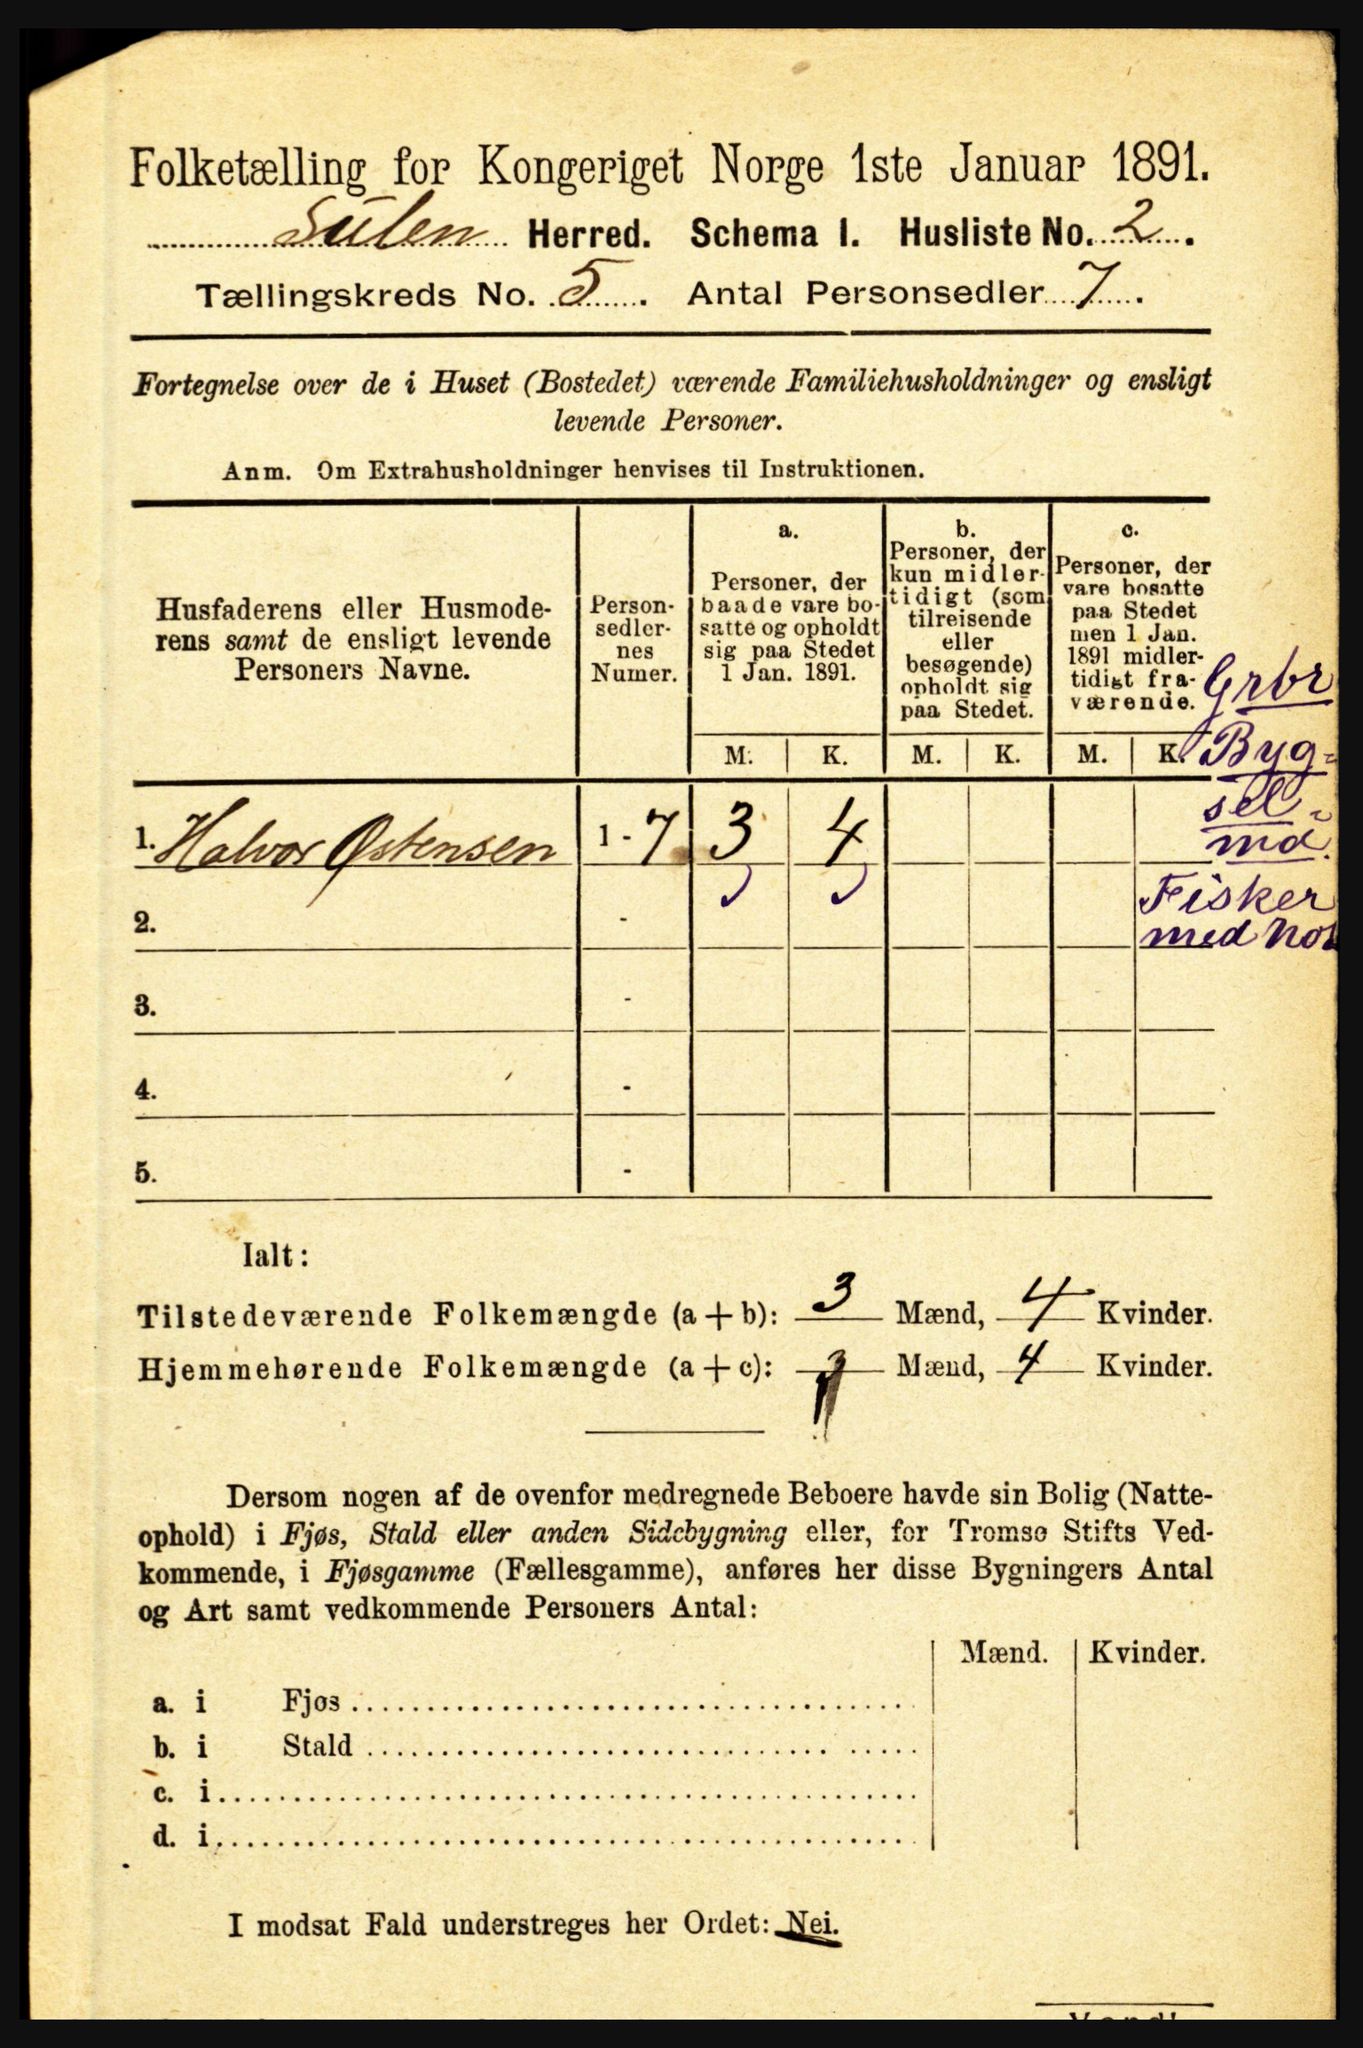 Folketælling for Kongeriget Norge 1ste Januar 1891.
Sulen Herred. Schema I. Husliste No. 2.
Tællingskreds No. 5. Antal Personsedler 7.
Fortegnelse over de i Huset (Bostedet) værende Familiehusholdninger og ensligt
levende Personer.
Anm. Om Extrahusholdninger henvises til Instruktionen.
Husfaderens eller Husmode-
rens samt de ensligt levende
Personers Navne.
Person-
sedler-
nes
Numer.
a.
Personer, der
baade vare bo-
satte og opholdt
sig paa Stedet
1 Jan. 1891.
b.
Personer, der
kun midler-
tidigt (som
tilreisende
eller
besøgende)
opholdt sig
paa Stedet.
c.
Personer, der
vare bosatte
paa Stedet
men 1 Jan.
1891 midler-
tidigt fra-
værende.
M. K. M. K. M. K.
Grbr
Byg-
sel-
md.
1. Halvor Østensen 1 - 7 3 4
Fisker
med not
2. -
3. -
4. -
5. -
Ialt:
Tilstedeværende Folkemængde (a + b): 3 Mænd, 4 Kvinder.
Hjemmehørende Folkemængde (a + c): 3 Mænd, 4 Kvinder.
Dersom nogen af de ovenfor medregnede Beboere havde sin Bolig (Natte-
ophold) i Fjøs, Stald eller anden Sidebygning eller, for Tromsø Stifts Ved-
kommende, i Fjøsgamme (Fællesgamme), anføres her disse Bygningers Antal
og Art samt vedkommende Personers Antal:
Mænd. Kvinder.
a. i Fjøs
b. i Stald
c. i
d. i
I modsat Fald understreges her Ordet: Nei.
Vend!